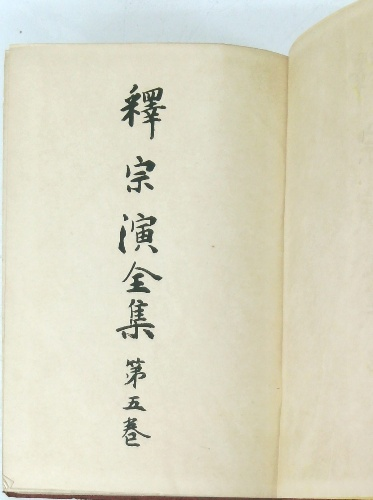 釋宗演全集第五卷